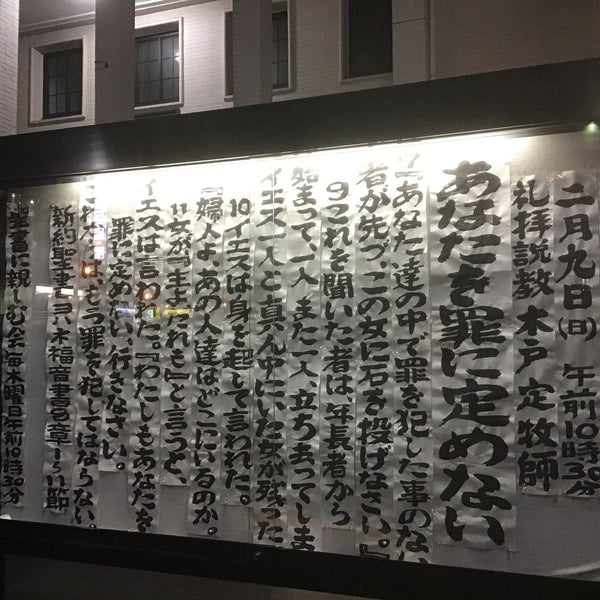 二月九日(日)午前10時30分
礼拝説教 木戸定牧師
あなたを罪に定めない
『あなた達の中で罪を犯した事のない
者が先づ、この女に石を投げなさい。』
9これを聞いた者は、年長者から
始まって、一人また一人、立ちまってしま
イエス一人と真ん中にいた女が残った
10イエスは身を起して言われた。
『婦人よ、あの人達はどこにいるのか。
11女が『主よだれも』と言うと、
イエスは言われた。『わたしもあなたを
罪に定めない、行きなさい。
これからは、もう罪を犯してはならない。
新約聖書ヨハネ福音書8章1~11節
聖書に親しむ会(毎木曜日午前10時30分